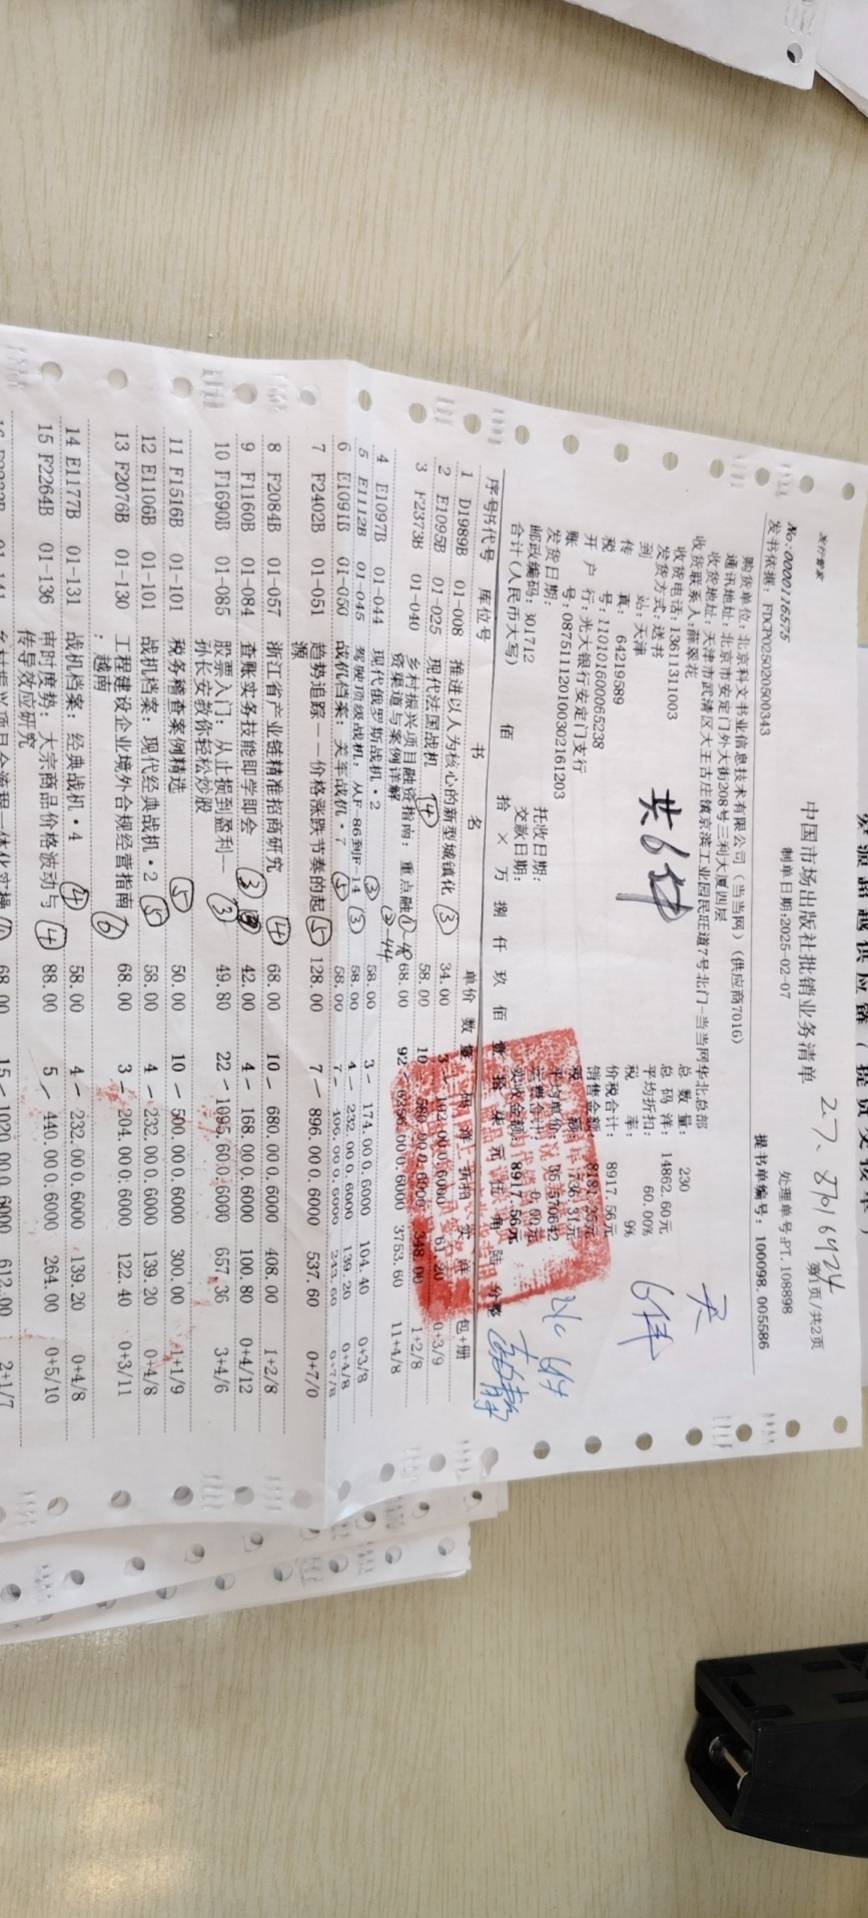 发行管家
中国市场出版社批销业务清单
27.8716424
No:0000116575
制单日期:2025-02-07
处理单号:PT.108898
第1页/共2页
发书依据: FDCP025020500343
提书单编号: 100098.005586
购货单位: 北京科文书业信息技术有限公司(当当网)(供应商7016)
通讯地址: 北京市安定门外大街208号三利大厦四层
收货地址: 天津市武清区大王古庄镇京滨工业园民旺道7号北门-当当网华北总部
收货联系人:薛翠花
总 数 量: 230
收货电话:13611311003
总 码 洋: 14862.60元
发货方式:送书
平均折扣: 60.00%
到 站: 天津
税 率: 9%
传 真: 64219589
价税合计: 8917.56元
税 号:110101600065238
销售金额: 8181.25元
开 户 行:光大银行安定门支行
税 额: 736.31元
账 号:08751112010030216120​3
发货日期:
托收日期:
邮政编码: 301712
交款日期:
实收金额: 8917.56元
共6件
6件
合计(人民币大写) 佰 拾 × 万 捌 仟 玖 佰 壹 拾 柒 元 伍 角 陆 分整
序号 书代号 库位号 书 名 单价 数量 码 洋 折扣 实 洋 包+册
1 D1989B 01-008 推进以人为核心的新型城镇化 ③ 34.00 3 102.00 0.6000 61.20 0+3/9
2 E1095B 01-025 现代法国战机 ④ 58.00 10 580.00 0.6000 348.00 1+2/8
3 F2373B 01-040 乡村振兴项目融资指南: 重点融 ①-48 68.00 92 6256.00 0.6000 3753.60 11+4/8
资渠道与案例详解 ②-44
4 E1097B 01-044 现代俄罗斯战机·2 ③ 58.00 3 174.00 0.6000 104.40 0+3/8
5 E1112B 01-045 驾驶顶级战机: 从F-86到F-14 ③ 58.00 4 232.00 0.6000 139.20 0+4/8
6 E1091B 01-050 战机档案: 美军战机·7 ⑤ 58.00 7 406.00 0.6000 243.60 0+7/8
7 F2402B 01-051 趋势追踪——价格涨跌节奏的起 ⑤ 128.00 7 896.00 0.6000 537.60 0+7/0
源
8 F2084B 01-057 浙江省产业链精准招商研究 ④ 68.00 10 680.00 0.6000 408.00 1+2/8
9 F1160B 01-084 查账实务技能即学即会 ③ 42.00 4 168.00 0.6000 100.80 0+4/12
10 F1690B 01-085 股票入门: 从止损到盈利—— ③ 49.80 22 1095.60 0.6000 657.36 3+4/6
孙长安教你轻松炒股
11 F1516B 01-101 税务稽查案例精选 ⑤ 50.00 10 500.00 0.6000 300.00 1+1/9
12 E1106B 01-101 战机档案: 现代经典战机·2 ⑤ 58.00 4 232.00 0.6000 139.20 0+4/8
13 F2076B 01-130 工程建设企业境外合规经营指南 ⑥ 68.00 3 204.00 0.6000 122.40 0+3/11
: 越南
14 E1177B 01-131 战机档案: 经典战机·4 ④ 58.00 4 232.00 0.6000 139.20 0+4/8
15 F2264B 01-136 审时度势: 大宗商品价格波动与 ④ 88.00 5 440.00 0.6000 264.00 0+5/10
传导效应研究
68.00 15 1020.00 0.6000 612.00 2+1/7